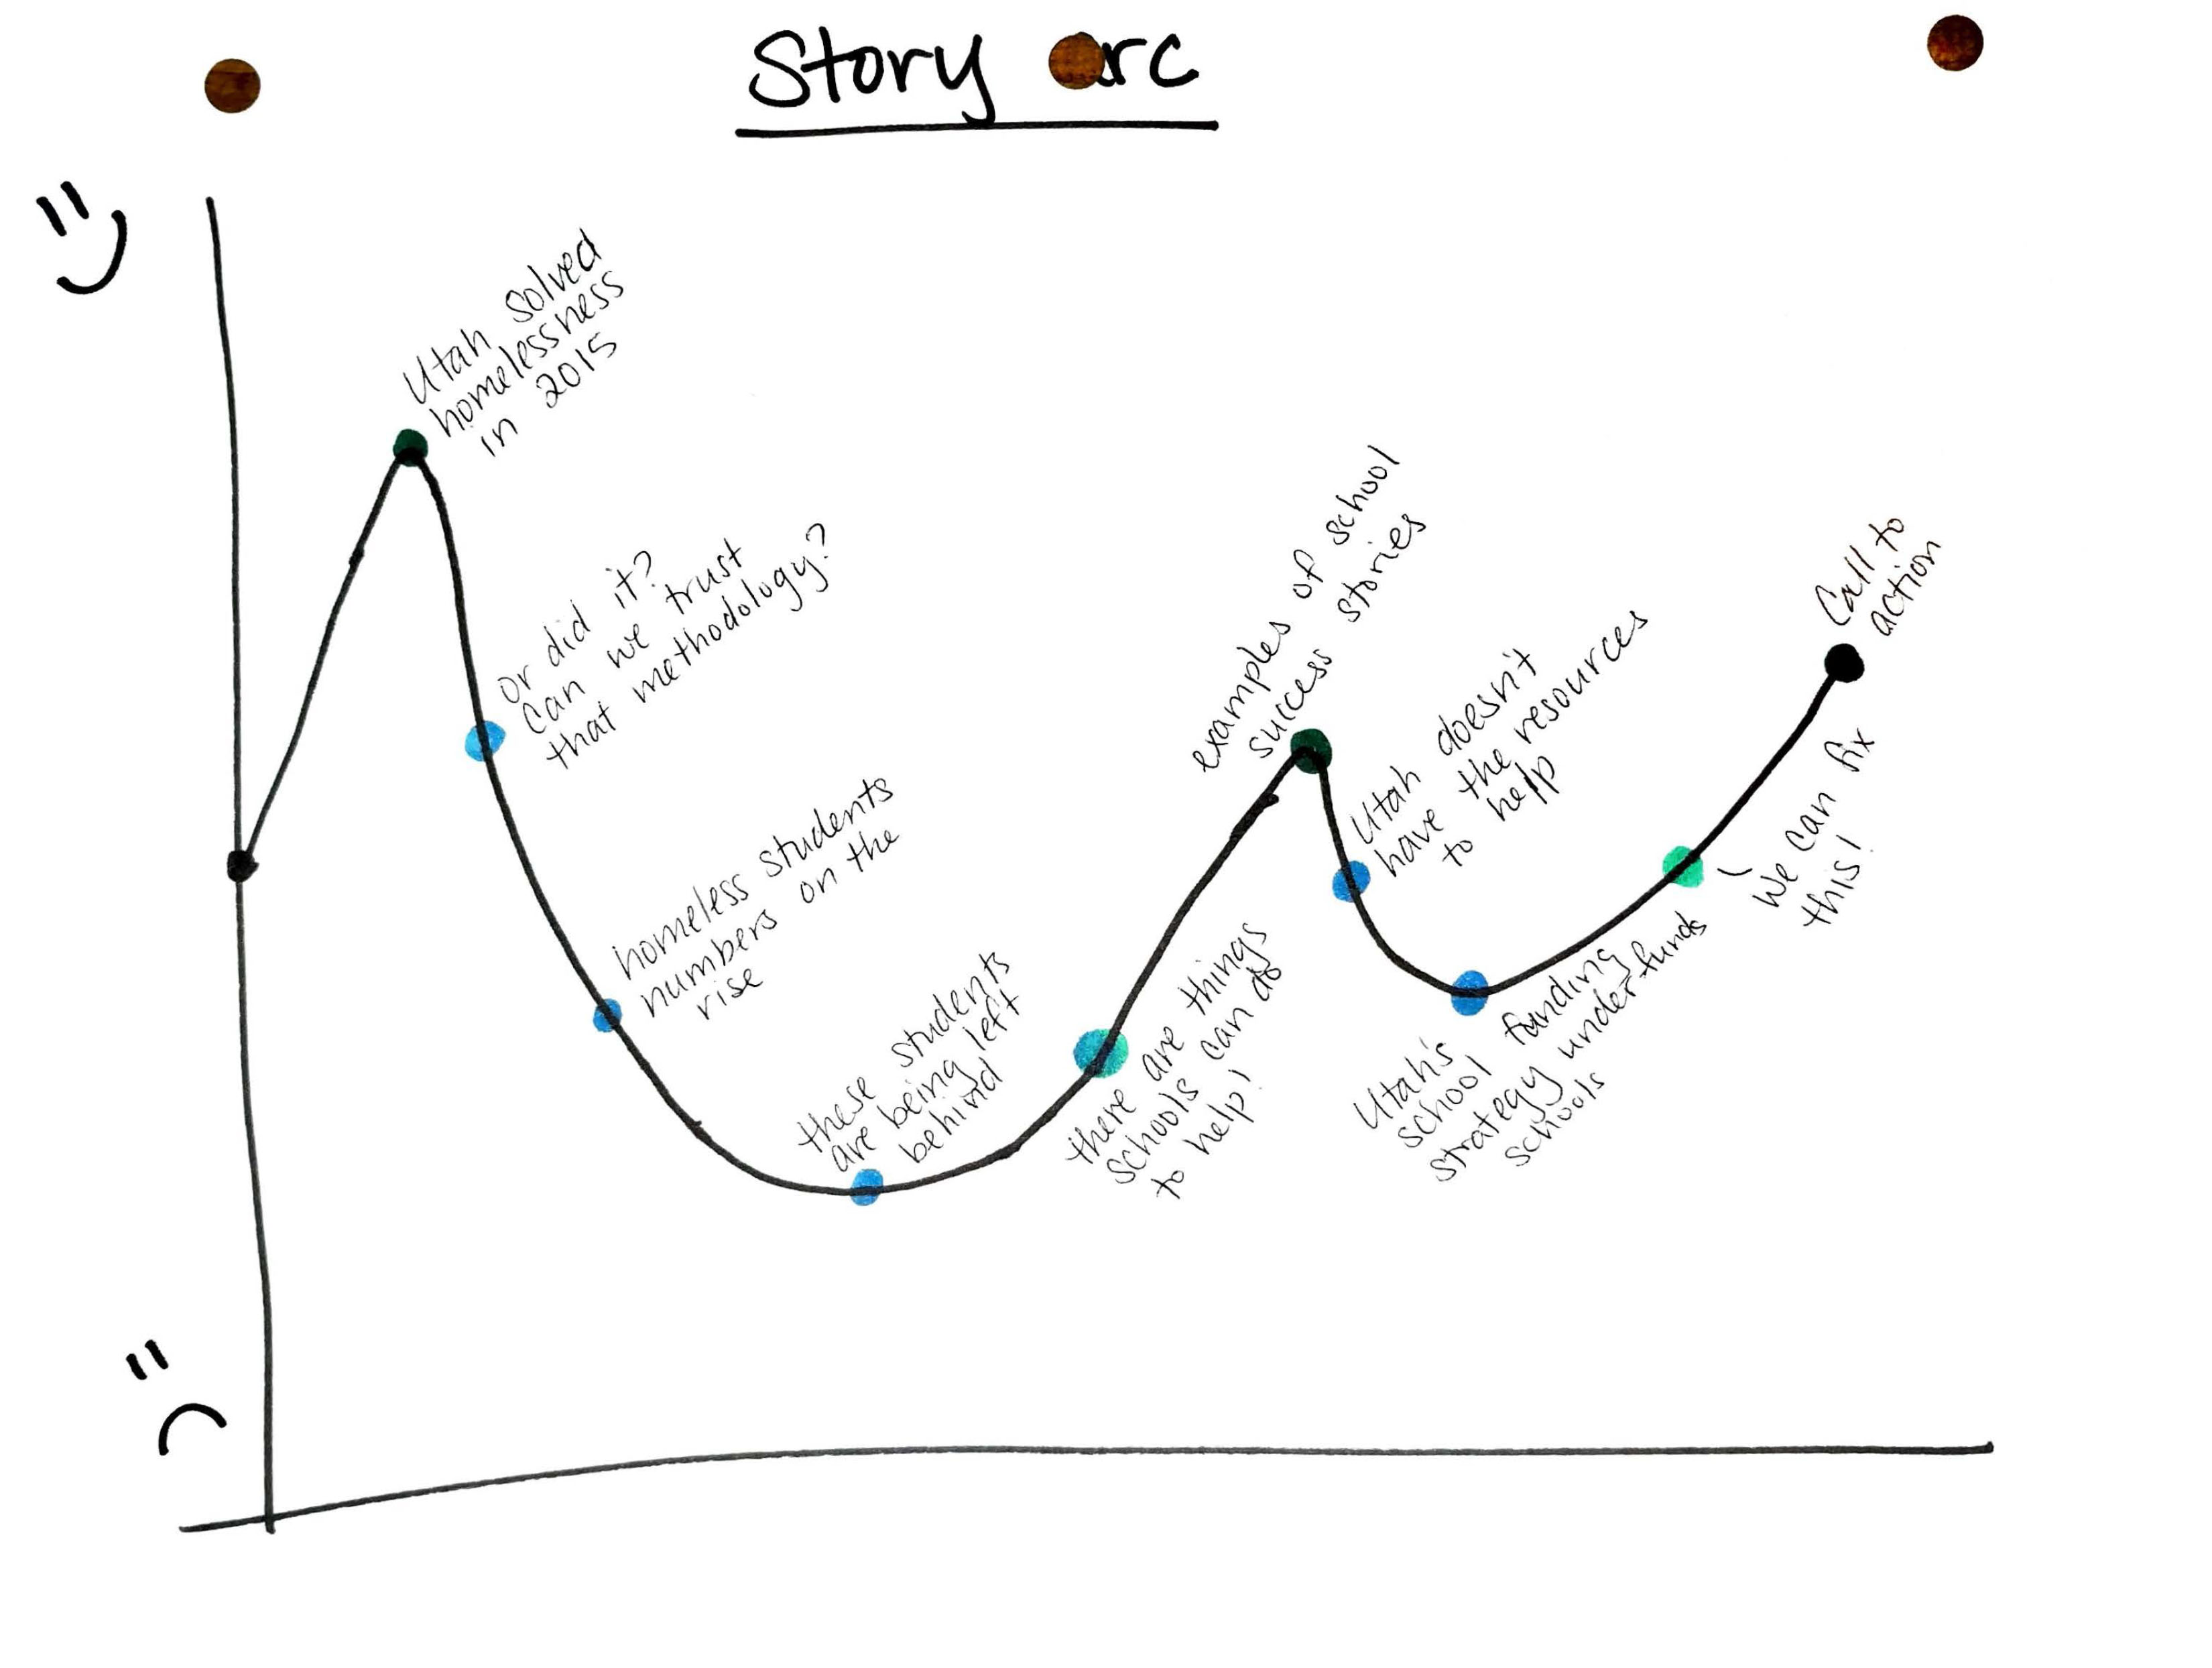 Story arc
Utah solved
homelessness
in 2015
Or did it?
Can we trust
that methodology?
homeless students
numbers on the
rise
these students
are being left
behind
there are things
schools can do
to help!
examples of school
success stories
Utah doesn't
have the resources
to help
Utah's
school funding
strategy underfunds
schools
We can fix
this!
Call to
action